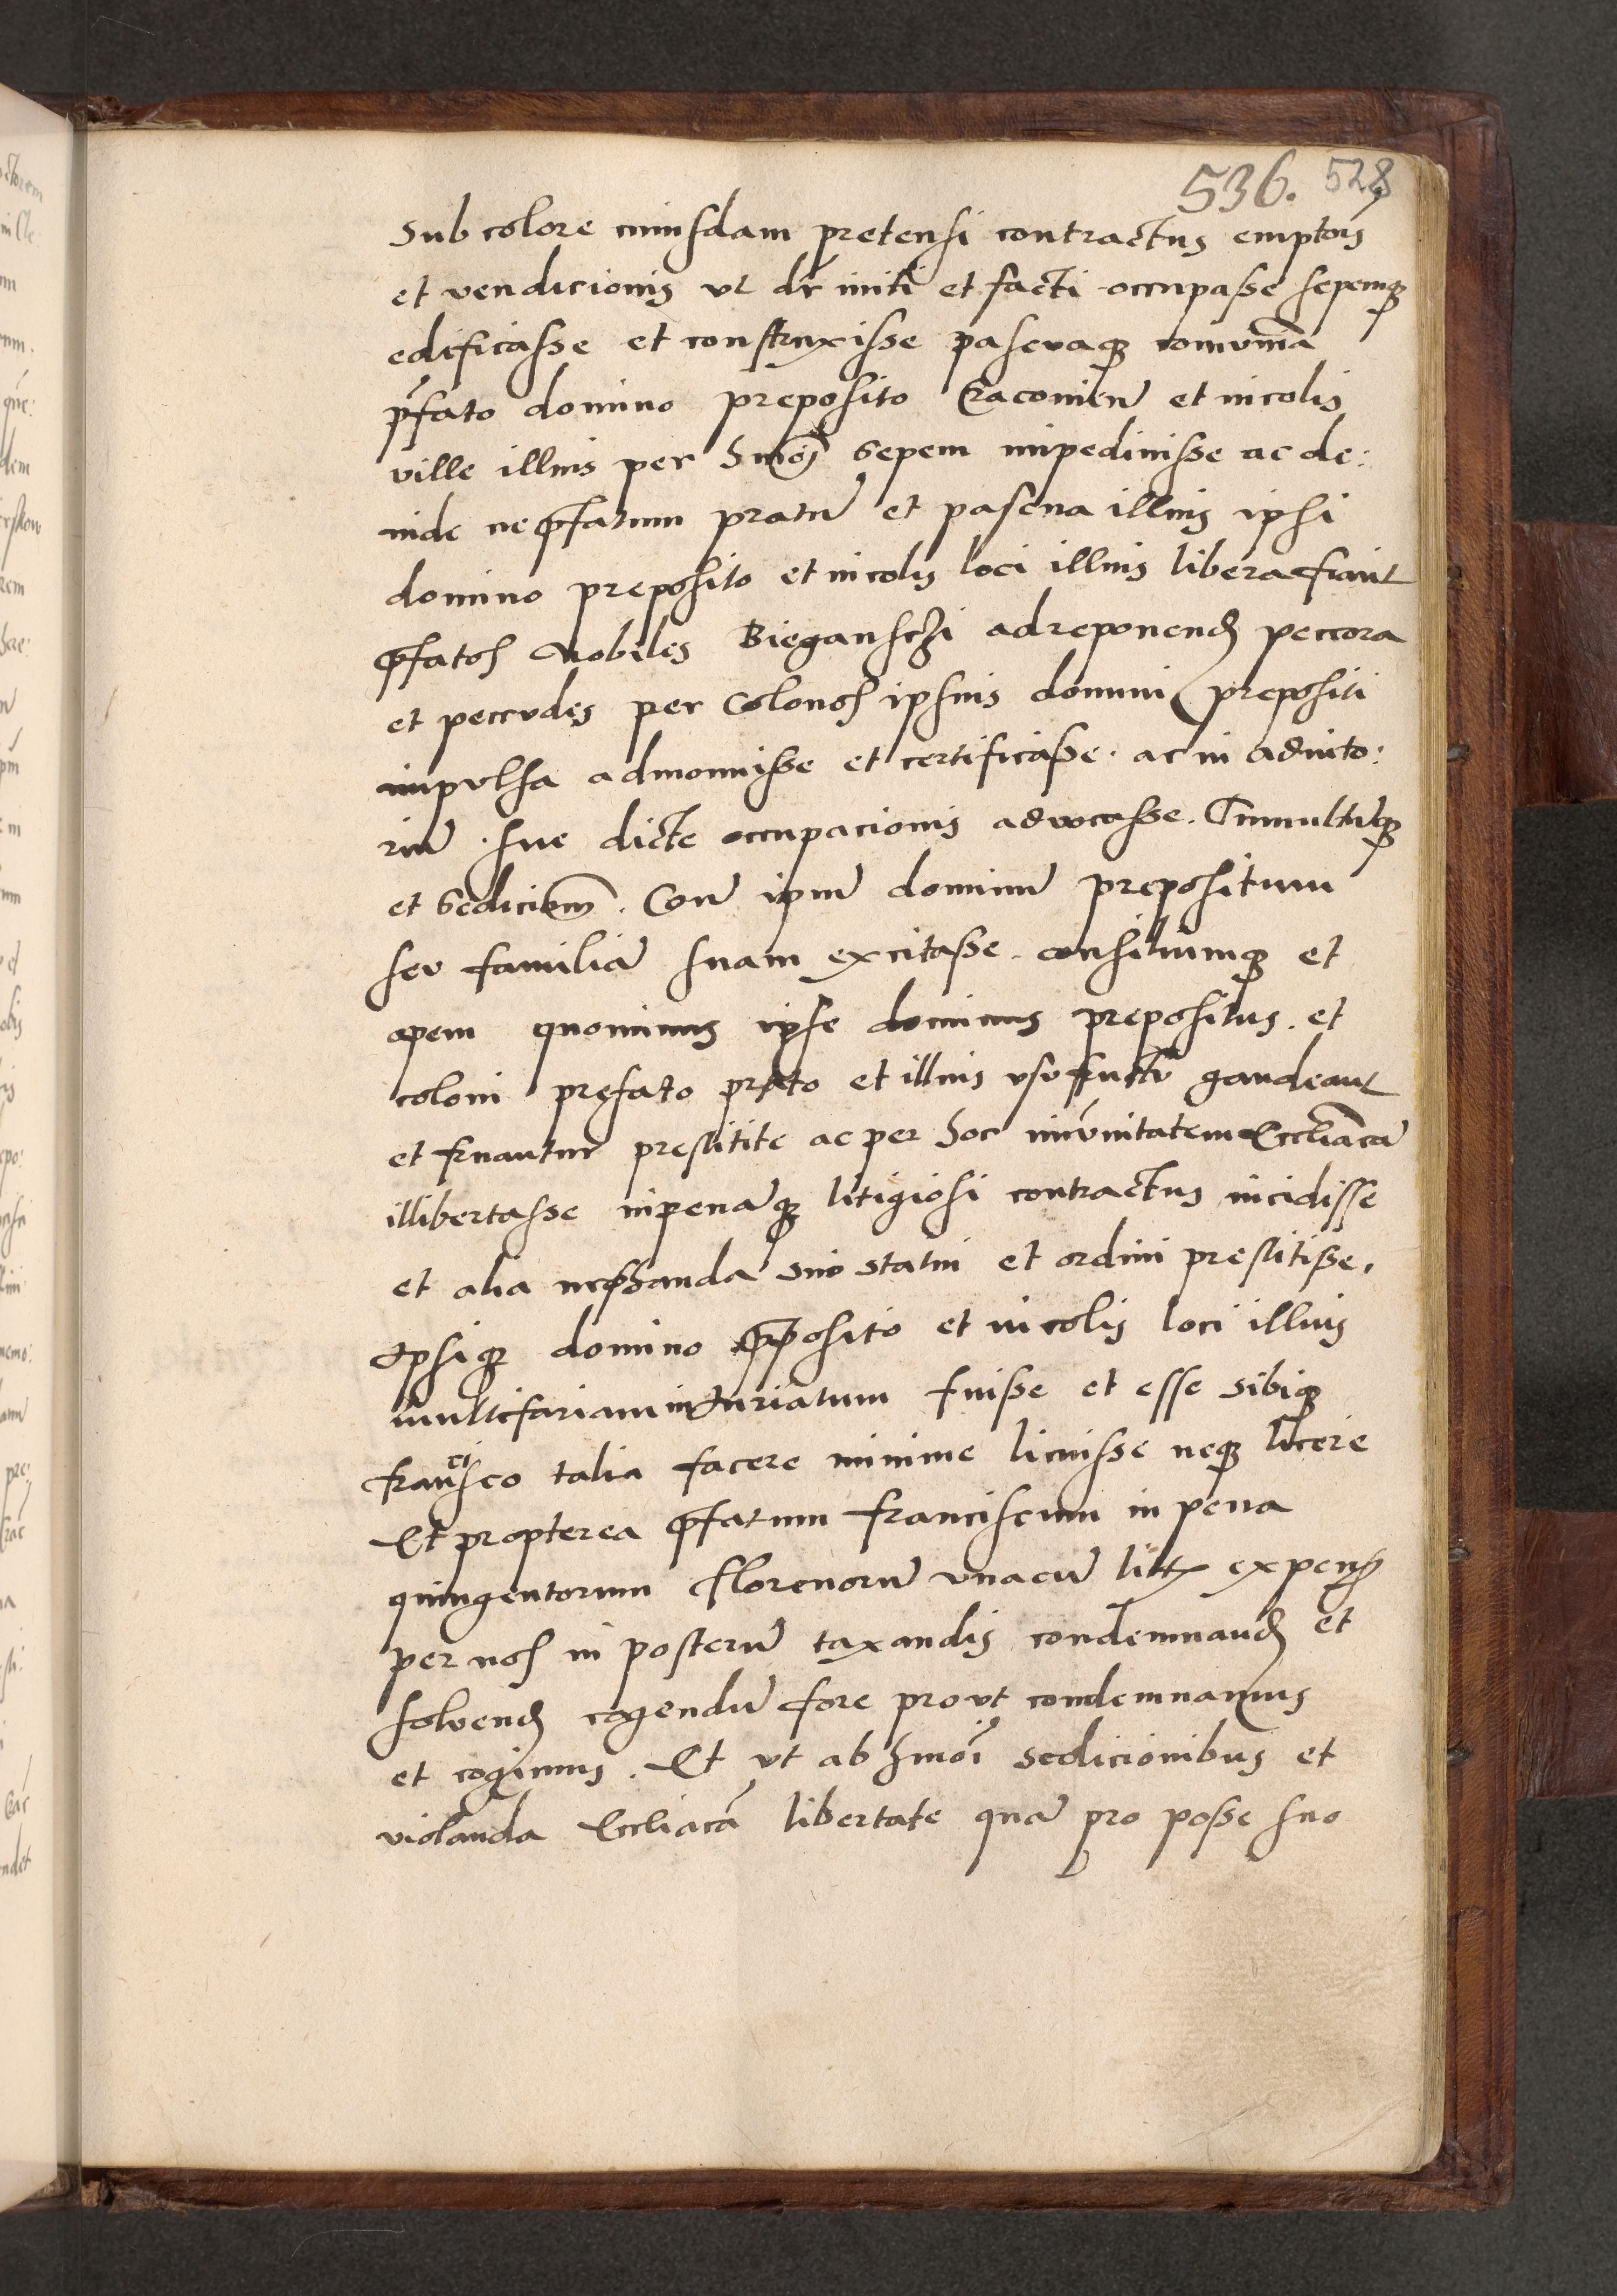 536. 528
Sub colore cuiusdam pretensi contractus emptōis
et vendicionis vt dr̄ initi et facti occupasse sepemq3
edificasse et construxisse pascuaq3 comūnia
p̄fato domino preposito Cracouień et incolis
ville illius per Hmōi sepem impediuisse ac de:
inde ne p̄fatum pratū et pascua illius ipsi
domino preposito et incolis loci illius libera fiant
p̄fatos Nobiles Bieganschi ad reponend peccora
et peccudes per Colonos ipsius domini prepositi
impulsa admonuisse et certificasse. ac in adiuto:
riū. sue dicte occupacionis aduocasse. Tumultūq3
et sedicionē. Con̄ ipm̄ dominū prepositum
seu familiā suam excitasse. consiliumq3 et
opem quominus ipse dominus prepositus. et
coloni prefato prato et illius vsufructu gaudeant
et fruantur prestitite ac per hoc imūnitatem Eccliasticā
illibertasse in penāq3 litigiosi contractus incidisse
et alia nephanda suo statui et ordini prestitisse.
Ipsiq3 domino p̄posito et incolis loci illius
multifariam iniuriatum fuisse et esse sibiq3
francisco talia facere minime licuisse neq3 licere
Et propterea p̄fatum franciscum in pena
quingentorum florenorū vnacū litis expens
per nos in posterū taxandis condemnand et
soluend cogendū fore prout condemnamus
et cogimus. Et vt ab hmōi sedicionibus et
violanda Eccliacā libertate quā pro posse suo